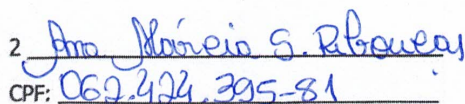 2 Ana Márcia S. Rebouças
CPF: 062.424.395-81